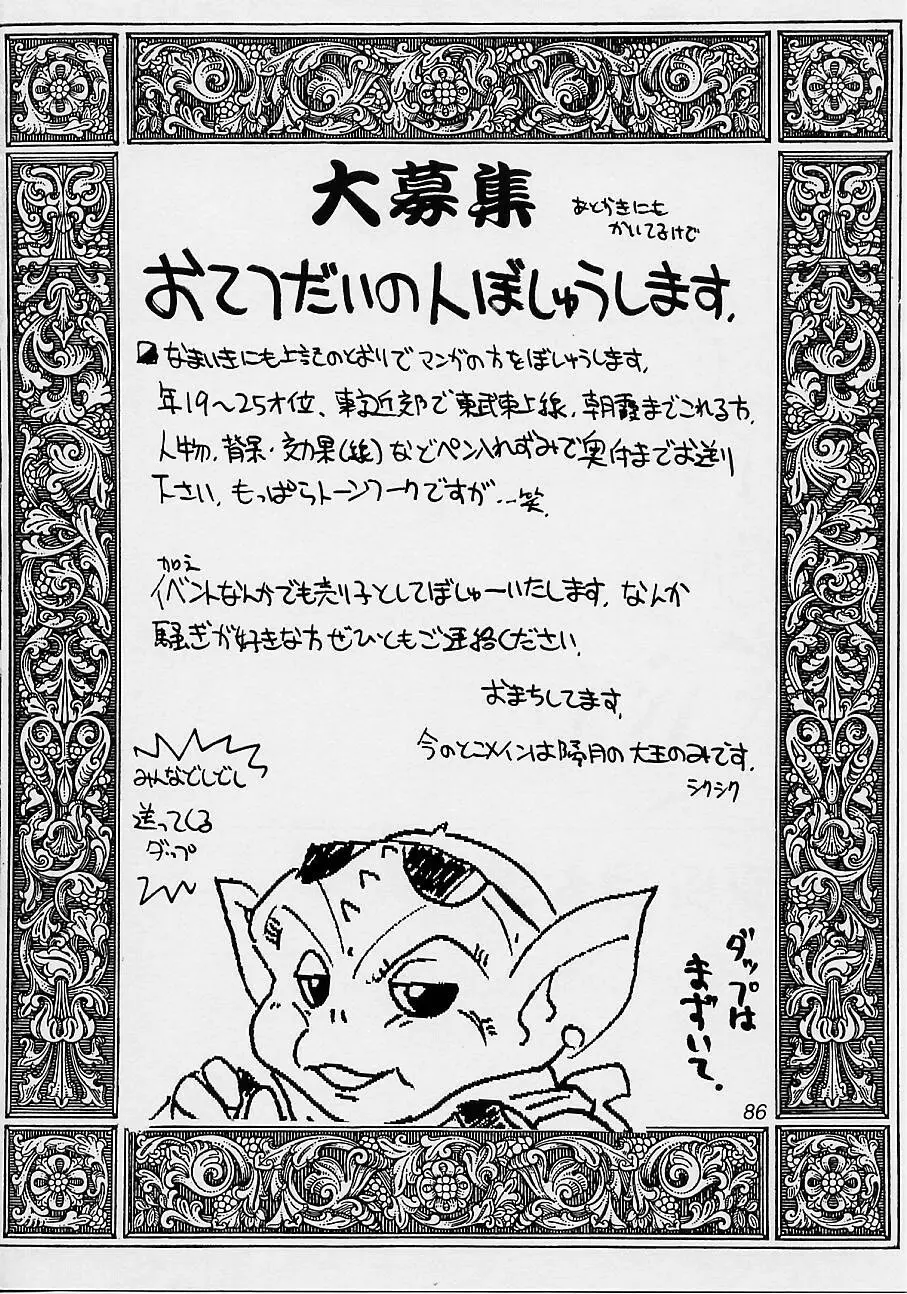 大募集
あとがきにも
かいてるけど
おてつだいの人ぼしゅうします.
なまいきにも上記のとおりでマンガの方をぼしゅうします.
年19〜25才位、東京近郊で東武東上線.朝霞までこれる方.
人物.背景・効果(線)などペン入れずみで奥付までお送り
下さい.もっぱらトーンワークですが…笑.
加え
イベントなんかでも売り子としてぼしゅーいたします.なんか
騒ぎが好きな方ぜひともご連絡ください.
おまちしてます.
今のとこメインは隔月の大王のみです.
シクシク
みんなどしどし
送ってくる
ダップ
ダップは
まずいて.
86